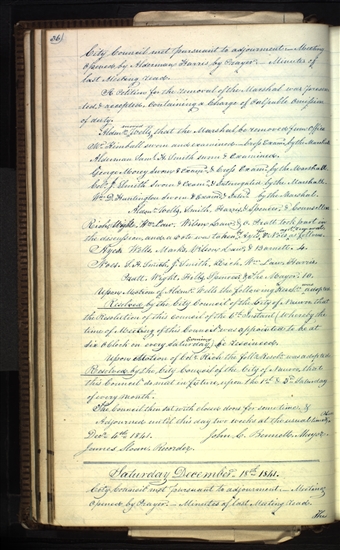 36
City Council met pursuant to adjournment — Meeting
opened by Alderman Harris by Prayer — Minutes of
last Meeting read.
A Petition for the removal of the Marshal was presen-
ted & accepted, containing a Charge of Culpable Omission
of duty.
Aldn. moved, that the Marshal be removed from Office
Mr. Kimball sworn and examined — Cross Exam. by the Marshal
Alderman Saml. H. Smith sworn & Examined.
George Morey sworn & Exam. & Cross Exam. by the Marshall
Col. J. Smith Sworn & Exam. & Interrogated by the Marshall
Wm. D. Huntington Sworn & Exam. & Inter. by the Marshal.
Aldn. Wells, Smith, Harris, & Spencer; & Councillors
Rich, Wight, Wm. Law, Wilson Law, & O. Pratt took part in
the discussion, and a vote was taken as follows
Ayes. Wells, Marks, Wilson Law, & Barnett. 4.
Noes. S. H. Smith, J. Smith, Wm. Law, Harris
Pratt, Wight, Spencer & the Mayor. 10.
Upon Motion of Aldn. Wells the following Resoln. was adopted
Resolved by the City Council of the City of Nauvoo, that
the Resolution of this council of the 6th Instant (whereby the
time of Meeting of this Council was appointed to be at
six O'clock on every Saturday Evening) be rescinded.
Upon Motion of Col. Rich the foll. Resoln. was adopted
Resolved by the City Council of the City of Nauvoo, that
this Council do meet in future, upon the 1st & 3rd Saturday
of every month.
The Council then sat with closed doors for sometime, &
Adjourned until this day two weeks at the usual hour
Decr. 4th 1841. John C. Bennett, Mayor
James Sloan, Recorder.
Saturday December 18th 1841.
City Council met pursuant to adjournment — Meeting
Opened by Prayer — Minutes of last Meeting read.
The